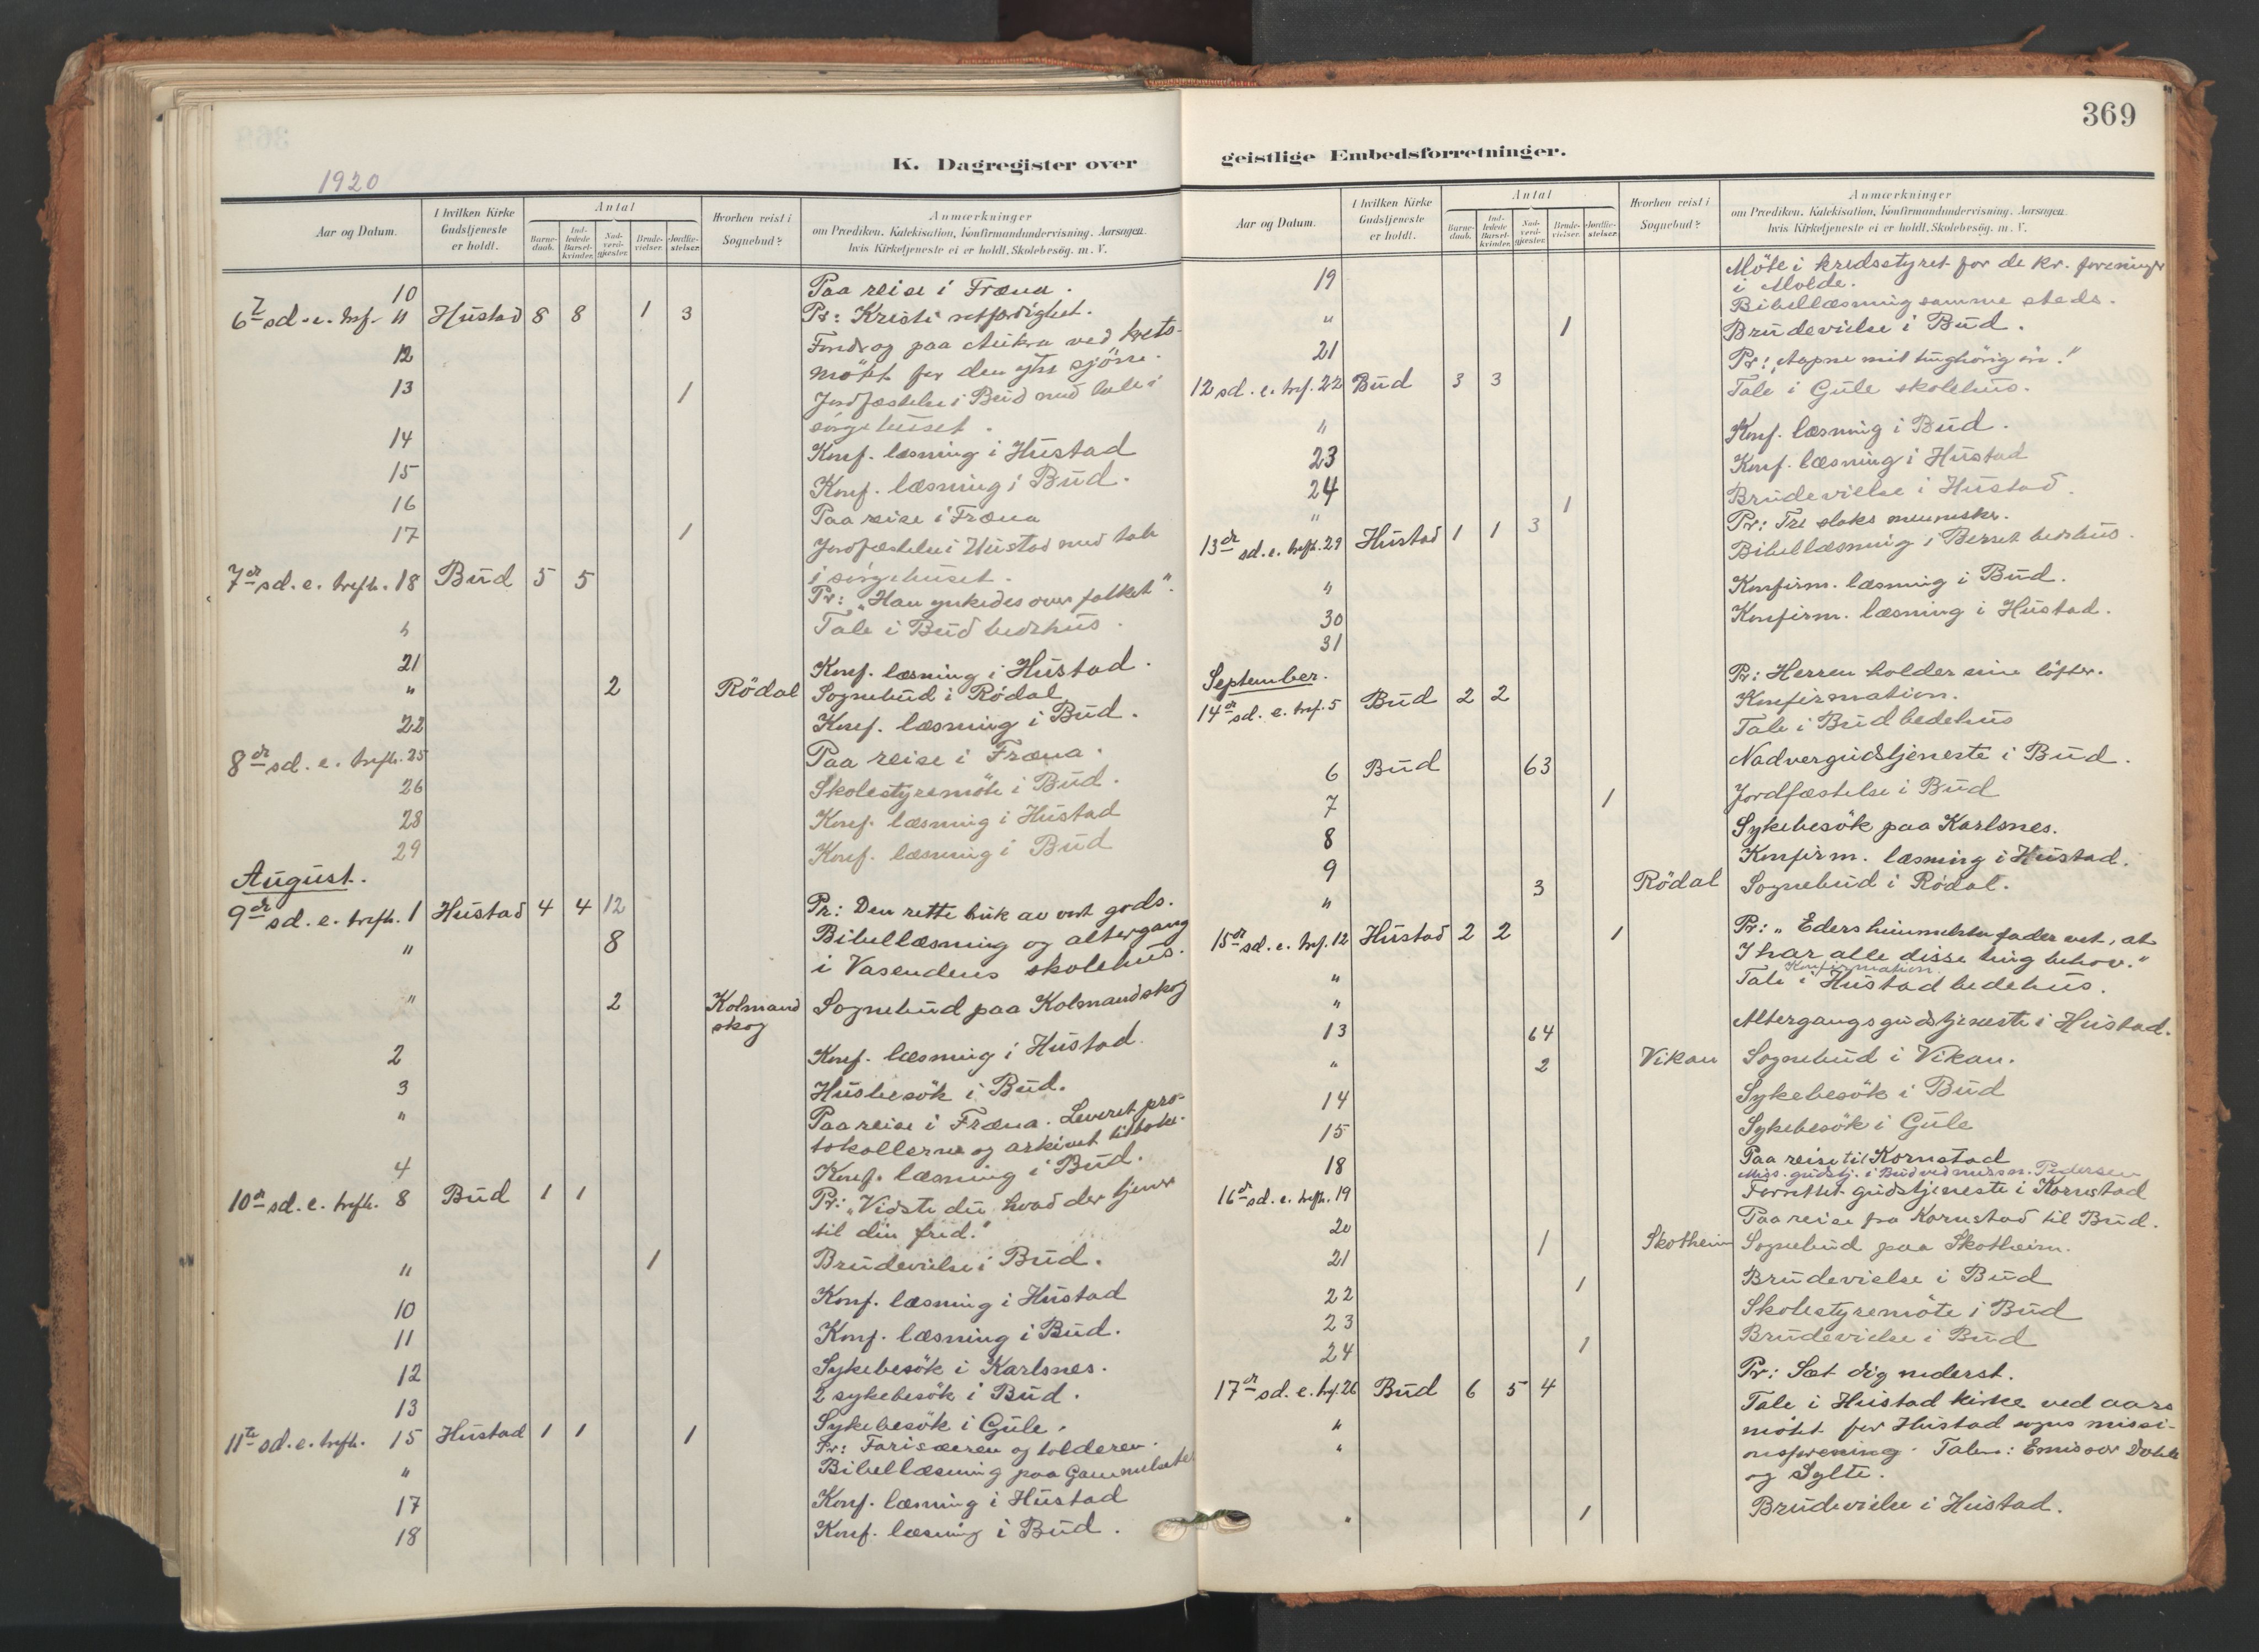 369
K. Dagregister over
geistlige Embedsforretninger.
1920
Aar og Datum. I hvilken Kirke Gudstjeneste er holdt. Antal Barne-daab. Ind-ledede Barsel-kvinder. Nad-verd-gjester. Brude-vielser. Jordfæ-stelser. Hvorhen reist i Sognebud? Anmærkninger om Prædiken, Katekisation, Konfirmandundervisning. Aarsagen hvis Kirketjeneste ei er holdt. Skolebesög. m. V.
10 Paa reise i Fræna.
6te sd. e. tref. 11 Hustad 8 8 1 3 Pr: Kristi retfærdighet.
12 Foredrag paa Aukra ved krets-
møtet for den ytre sjömi.
13 1 Jordfæstelse i Bud med tale i
sörgehuset.
14 Konf. læsning i Hustad
15 Konf. læsning i Bud.
16 Paa reise i Fræna
17 1 Jordfæstelse i Hustad med tale
i sörgehuset.
7de sd. e. trefh. 18 Bud 5 5 Pr: "Han ynkedes over folket".
" Tale i Bud bedehus.
21 Konf. læsning i Hustad.
" 2 Rödal Sognebud i Rödal
22 Konf. læsning i Bud.
8de sd. e. trefh. 25 Paa reise i Fræna.
26 Skolestyremöte i Bud.
28 Konf. læsning i Hustad
29 Konf. læsning i Bud
August.
9de sd. e. trefh. 1 Hustad 4 4 12 Pr: Den rette bruk av vort gods.
" 8 Bibellæsning og altergang
i Vasendens skolehus.
" 2 Kolmand Sognebud paa Kolmandskog
skog
2 Konf. læsning i Hustad.
3 Husbesök i Bud.
" Paa reise i Fræna. Leveret pro-
tokollerne og arkivet tilbake.
4 Konf. læsning i Bud.
10de sd. e. trefh. 8 Bud 1 1 Pr: "Vidste du, hvad der tjener
til din fred."
" 1 Brudevielse i Bud.
10 Konf. læsning i Hustad
11 Konf. læsning i Bud.
12 Sykebesök i Karlsnes.
2 sykebesök i Bud.
13 Sykebesök i Gule.
11te sd. e. trefh. 15 Hustad 1 1 1 Pr: Farisæeren og tolderen.
" Bibellæsning paa Gammelsæter
17 Konf. læsning i Hustad
18 Konf. læsning i Bud.
Aar og Datum. I hvilken Kirke Gudstjeneste er holdt. Antal Barne-daab. Ind-ledede Barsel-kvinder. Nad-verd-gjester. Brude-vielser. Jordfæ-stelser. Hvorhen reist i Sognebud? Anmærkninger om Prædiken, Katekisation, Konfirmandundervisning. Aarsagen hvis Kirketjeneste ei er holdt. Skolebesög. m. V.
19 Möte i kredsstyret for de kr. foreninger
i Molde.
" Bibellæsning samme steds.
21 1 Brudevielse i Bud.
12 sd. e. tref. 22 Bud 3 3 Pr: "Aapne mit tunghörig öre."
" Tale i Gule skolehus.
23 Konf. læsning i Bud.
24 Konf. læsning i Hustad
" 1 Brudevielse i Hustad.
13de sd. e. trefh. 29 Hustad 1 1 3 Pr: Tre slaks mennesker.
" Bibellæsning i Berset bedehus.
30 Konfirm. læsning i Bud.
31 Konfirm. læsning i Hustad.
September.
14de sd. e. tref. 5 Bud 2 2 Pr: Herren holder sine löfter.
Konfirmation.
Tale i Bud bedehus
6 Bud 63 Nadvergudstjeneste i Bud.
7 1 Jordfæstelse i Bud
8 Sykebesök paa Karlsnes.
9 Konfirm. læsning i Hustad.
" 3 Rödal Sognebud i Rödal.
15de sd. e. tref. 12 Hustad 2 2 1 Pr: "Eders himmelske fader vet, at
I har alle disse ting behov."
Konfirmation.
" Tale i Hustad bedehus.
"
13 64 Altergangsgudstjeneste i Hustad.
" 2 Vikan Sognebud i Vikan.
14 Sykebesök i Bud
15 Sykebesök i Gule
18 Paa reise til Kornstad
Miss. gudstj. i Bud ved missn. Pedersen
16de sd. e. trefh. 19 Forrettet gudstjeneste i Kornstad
20 Paa reise fra Kornstad til Bud.
21 1 Skotheim Sognebud paa Skotheim.
22 1 Brudevielse i Bud
23 Skolestyremöte i Bud
24 1 Brudevielse i Bud
17de sd. e. tref. 26 Bud 6 5 4 Pr: Sæt dig nederst.
" Tale i Hustad kirke ved aars
" mötet for Hustad sogns missi-
onsforening. Talere: Emissær
og Sylte.
" 1 Brudevielse i Hustad.